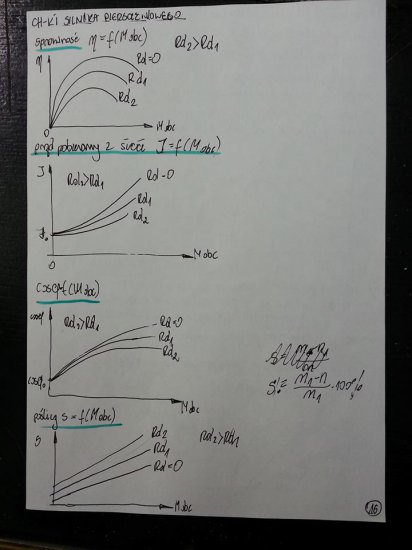 CH-KI SILNIKA PIERŚCINIOWEGO
sprawność η = f(Mobc) Rd2>Rd1
η
Rd=0
Rd1
Rd2
0
Mobc
prąd pobierany z sieci J=f(Mobc)
J
Rd2>Rd1
Rd=0
Rd1
Rd2
Jo
0
Mobc
cosφ f(Mobc)
cosφ
Rd2>Rd1
Rd=0
Rd1
Rd2
cosφo
Mobc
S% = n1-n / n1 · 100%
poślizg s = f(Mobc)
S
Rd2
Rd2>Rd1
Rd1
Rd=0
Mobc
16